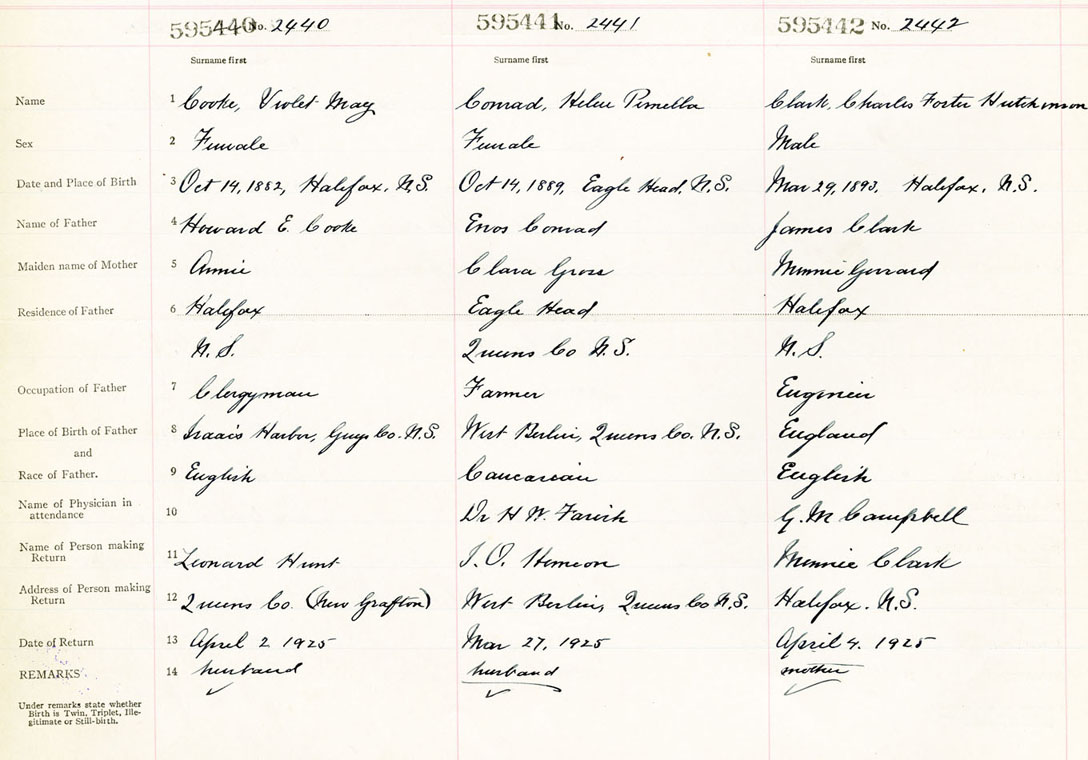 595440 No. 2440 595441 No. 2441 595442 No. 2442
Surname first Surname first Surname first
Name 1 Cooke, Violet May Conrad, Helen Clark, Charles Foster Hutchinson
Sex 2 Female Female Male
Date and Place of Birth 3 Oct 14, 1882, Halifax, N.S. Oct 14, 1889, Eagle Head, N.S. Mar 29, 1893, Halifax, N.S.
Name of Father 4 Howard E. Cooke Enos Conrad James Clark
Maiden name of Mother 5 Annie Clara Gross Minnie Gerrard
Residence of Father 6 Halifax Eagle Head Halifax
N.S. Queens Co N.S. N.S.
Occupation of Father 7 Clergyman Farmer Engineer
Place of Birth of Father 8 Isaac's Harbor, Guys Co. N.S. West Berlin, Queens Co. N.S. England
and
Race of Father. 9 English Caucasian English
Name of Physician in
attendance 10 Dr H W. Farish G. M Campbell
Name of Person making
Return 11 Leonard Hunt Hemeon Minnie Clark
Address of Person making
Return 12 Queens Co. (New Grafton) West Berlin, Queens Co N.S. Halifax. N.S.
Date of Return 13 April 2 1925 Mar 27, 1925 April 4. 1925
REMARKS 14 husband husband mother
Under remarks state whether
Birth is Twin, Triplet, Ille-
gitimate or Still-birth.